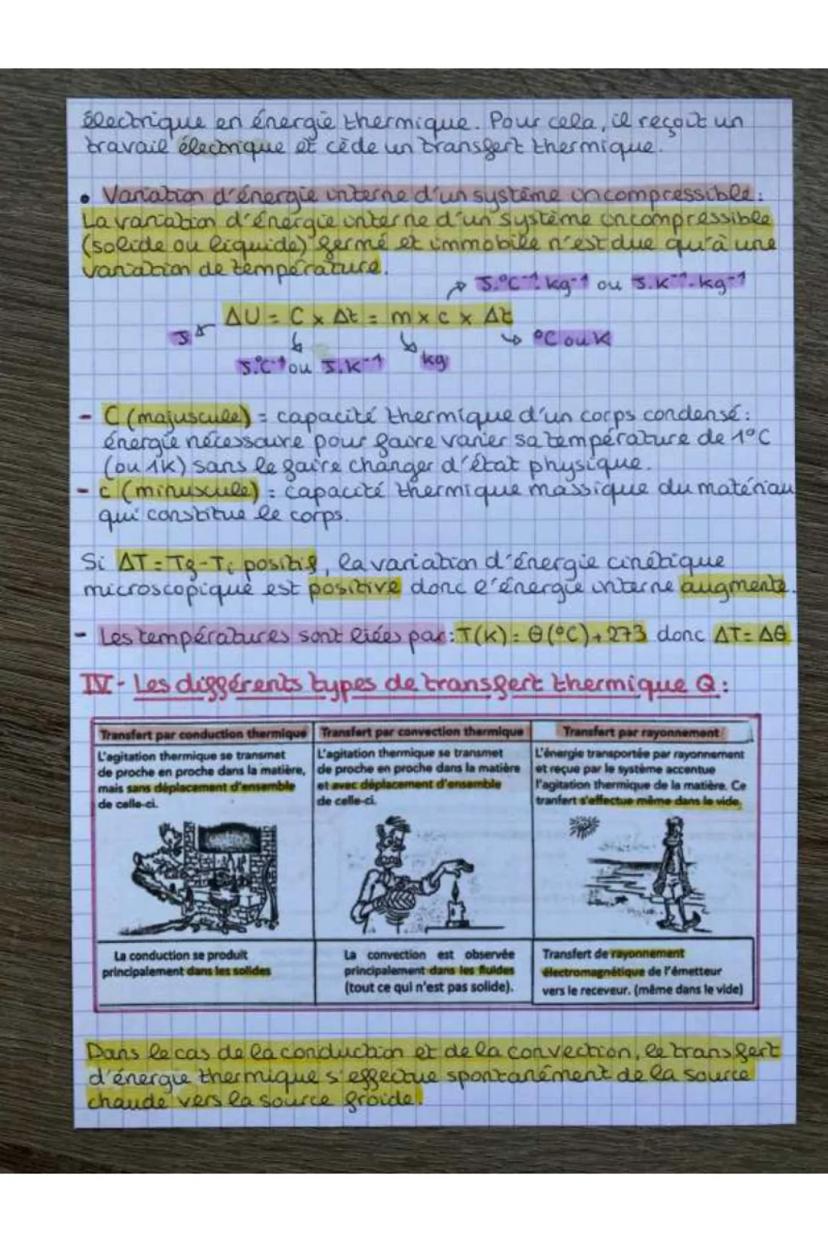 électrique en énergie thermique. Pour cela, il reçoit un
travail électrique et cède un transfert thermique.
• Variation d'énergie interne d'un système incompressible :
La variation d'énergie interne d'un système incompressible
(solide ou liquide) fermé et immobile n'est due qu'à une
variation de température.
J.°C⁻¹.kg⁻¹ ou J.K⁻¹.kg⁻¹
ΔU = C × Δt = m × c × Δt
J
°C ou K
J.°C⁻¹ ou J.K⁻¹
kg
- C (majuscule) = capacité thermique d'un corps condensé :
énergie nécessaire pour faire varier sa température de 1°C
(ou 1K) sans le faire changer d'état physique.
- c (minuscule) = capacité thermique massique du matériau
qui constitue le corps.
Si ΔT = Tf - Ti positif, la variation d'énergie cinétique
microscopique est positive donc l'énergie interne augmente.
- Les températures sont liées par : T(K) = θ(°C) + 273 donc ΔT = Δθ
IV - Les différents types de transfert thermique Q :
Transfert par conduction thermique
L'agitation thermique se transmet
de proche en proche dans la matière,
mais sans déplacement d'ensemble
de celle-ci.
La conduction se produit
principalement dans les solides
Transfert par convection thermique
L'agitation thermique se transmet
de proche en proche dans la matière
et avec déplacement d'ensemble
de celle-ci.
La convection est observée
principalement dans les fluides
(tout ce qui n'est pas solide).
Transfert par rayonnement
L'énergie transportée par rayonnement
et reçue par le système accentue
l'agitation thermique de la matière. Ce
tranfert s'effectue même dans le vide.
Transfert de rayonnement
électromagnétique de l'émetteur
vers le receveur. (même dans le vide)
Dans le cas de la conduction et de la convection, le transfert
d'énergie thermique s'effectue spontanément de la source
chaude vers la source froide.